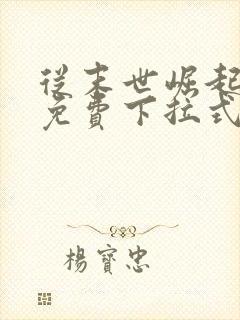 從末世崛起
免費下拉式
楊寶忠